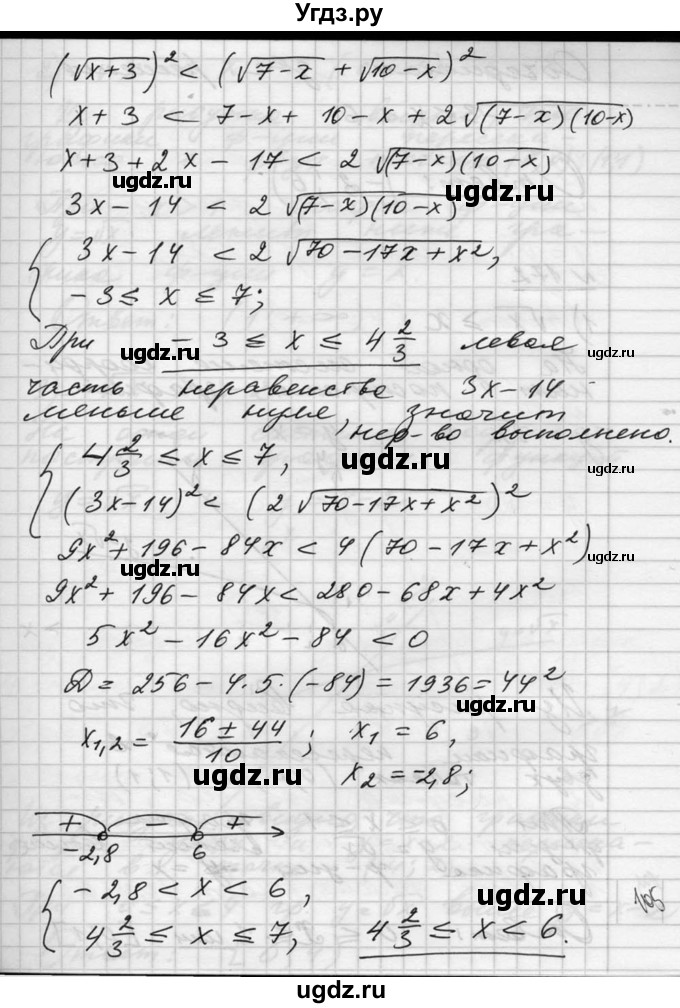 Угдз.ру
(√x+3)² < (√7-x + √10-x)²
x+3 < 7-x+10-x+2√(7-x)(10-x)
x+3+2x-17 < 2√(7-x)(10-x)
ugdz.ru ugdz.ru
3x-14 < 2√(7-x)(10-x)
ugdz.ru
{ 3x-14 < 2√70-17x+x²,
-3 ≤ x ≤ 7;
При -3 ≤ x ≤ 4 2/3 левая
ugdz.ru
часть неравенства 3x-14
меньше нуля, значит
нер-во выполнено.
{ 4 2/3 ≤ x ≤ 7,
ugdz.ru
(3x-14)² < (2√70-17x+x²)²
9x²+196-84x < 4(70-17x+x²)
ugdz.ru ugdz.ru
9x²+196-84x < 280-68x+4x²
5x²-16x²-84 < 0
D = 256-4·5·(-84) = 1936 = 44²
ugdz.ru
x1,2 = 16±44/10; x1 = 6,
x2 = -2,8;
ugdz.ru
+ - +
-2,8 6
{ -2,8 < x < 6,
ugdz.ru
4 2/3 ≤ x ≤ 7, 4 2/3 ≤ x < 6.
105
ugdz.ru